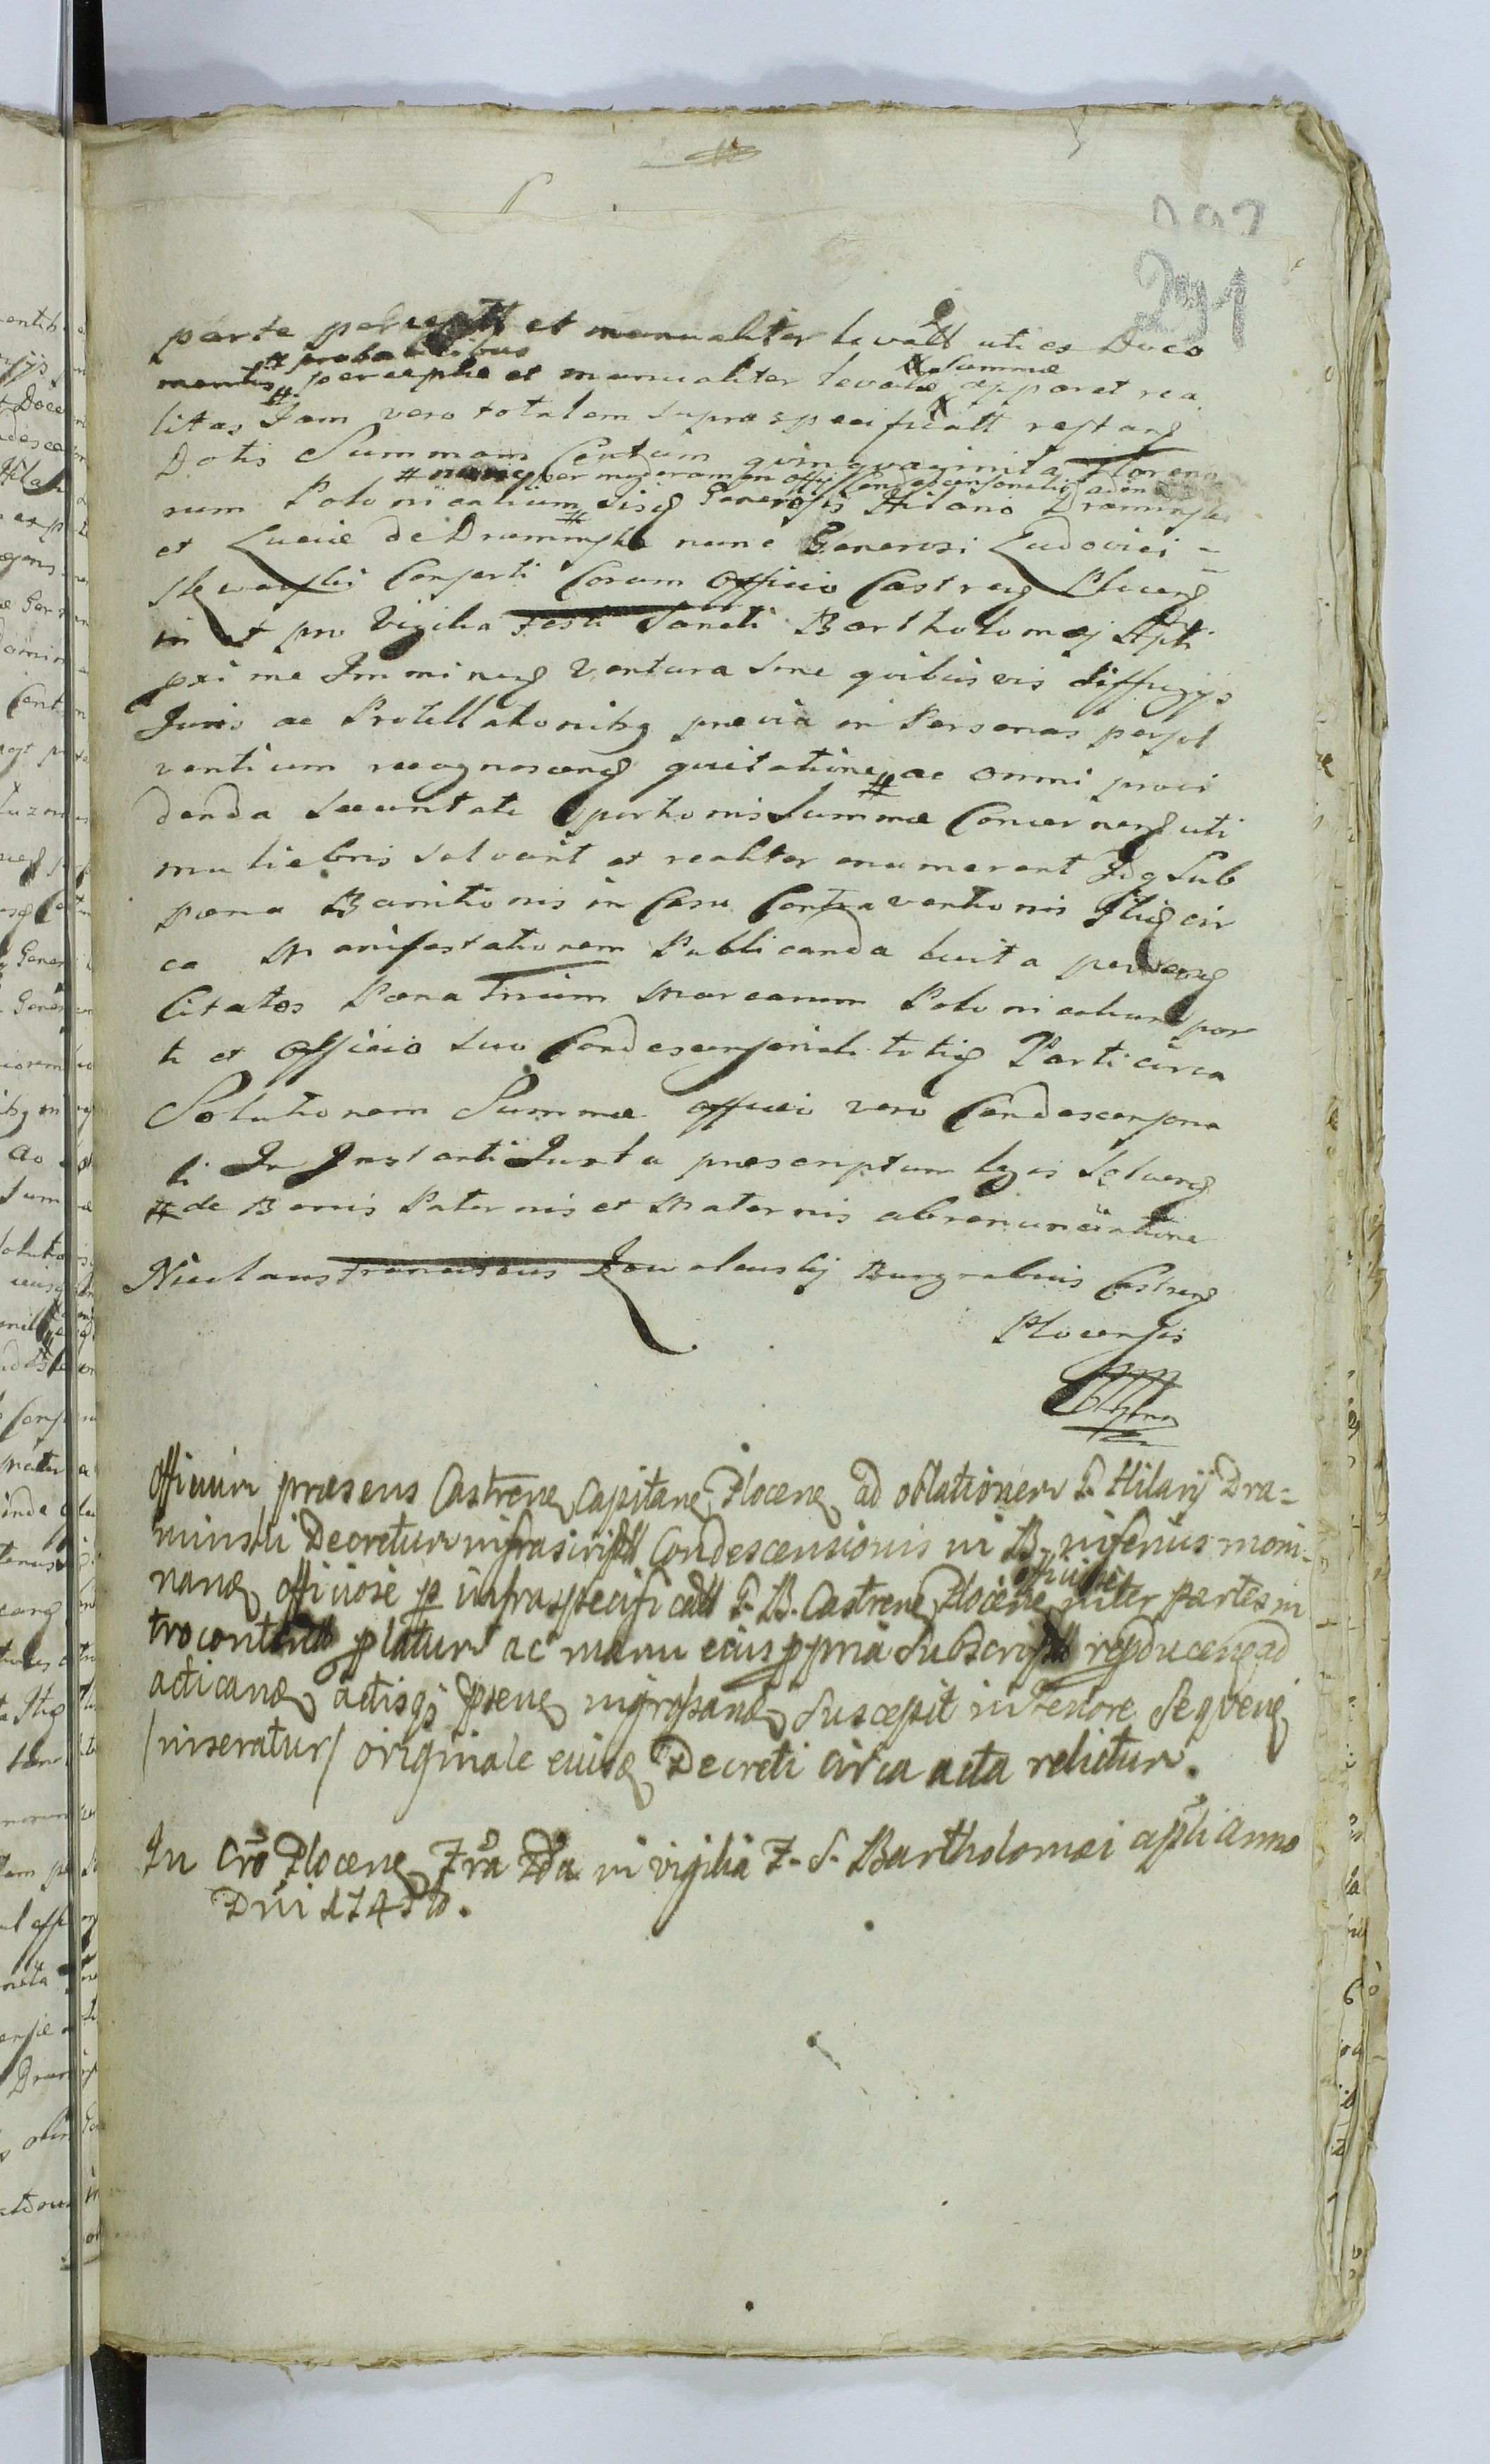 291
parte percept et manualiter levatt uti ex Docu
mentis # probabilibus perceptae et manualiter levatae Summae apparet rea
litas Jam vero totalem supraspecificatt restang
Dotis Summam Centum quinquaginita Floreno
rum Polonicalium # nunc per moderamen offij Condescensorialis eisq Generosis Hilario Draminski
et Luciae de Draminski nunc Generosi Ludovici =
Conforti Coram Officio Castreng Ploceng
in et pro Vigilia Festi Sancti Bartholomaej Apli
pxime Immineng Ventura sine quibusvis diffugijs
Juris ac Protestationibq praevia in Personas persol
ventium recognosceng quietatione # ac omni provi
denda securitate portionis Summae Concerneng uti
muliebris solvant et realiter enumerent Idq Sub
paena Bannitionis in Casu Contraventionis Stig cir
ca Manifestationem Publicanda luita per
Citatos Paena Trium Marcarum Polonicalium par
ti et Officio suo Condescensoriali totieq Parti circa
Solutionem Summae officio vero Condescensoria
li In Instanti Juxta praescriptum legis Solveng
# de Bonis Paternis et Maternis abrenunciatione
Nicolaus Franciscus Kowalewskij Burgrabius Castreng
Plocensis
Officium praesens Castrene Capitane Plocene ad oblationem G. Hilarij Dra=
minski Decretum infrascriptt Condescensionis in B. inferius nomi-
nane officiose p infraspecificatt G. B. Castrene Plocene officium inter partes in
trocontentt platum ac manu eius ppria Subscriptt reproducene ad
acticane actisq pnene ingrossane Suscepit in tenore Sequene
/inseratur/ originale eiusq Decreti circa acta relictum.
In Cro Plocene Fra 2da in vigilia F. S. Bartholomaei apli anno
Dni 1745to.